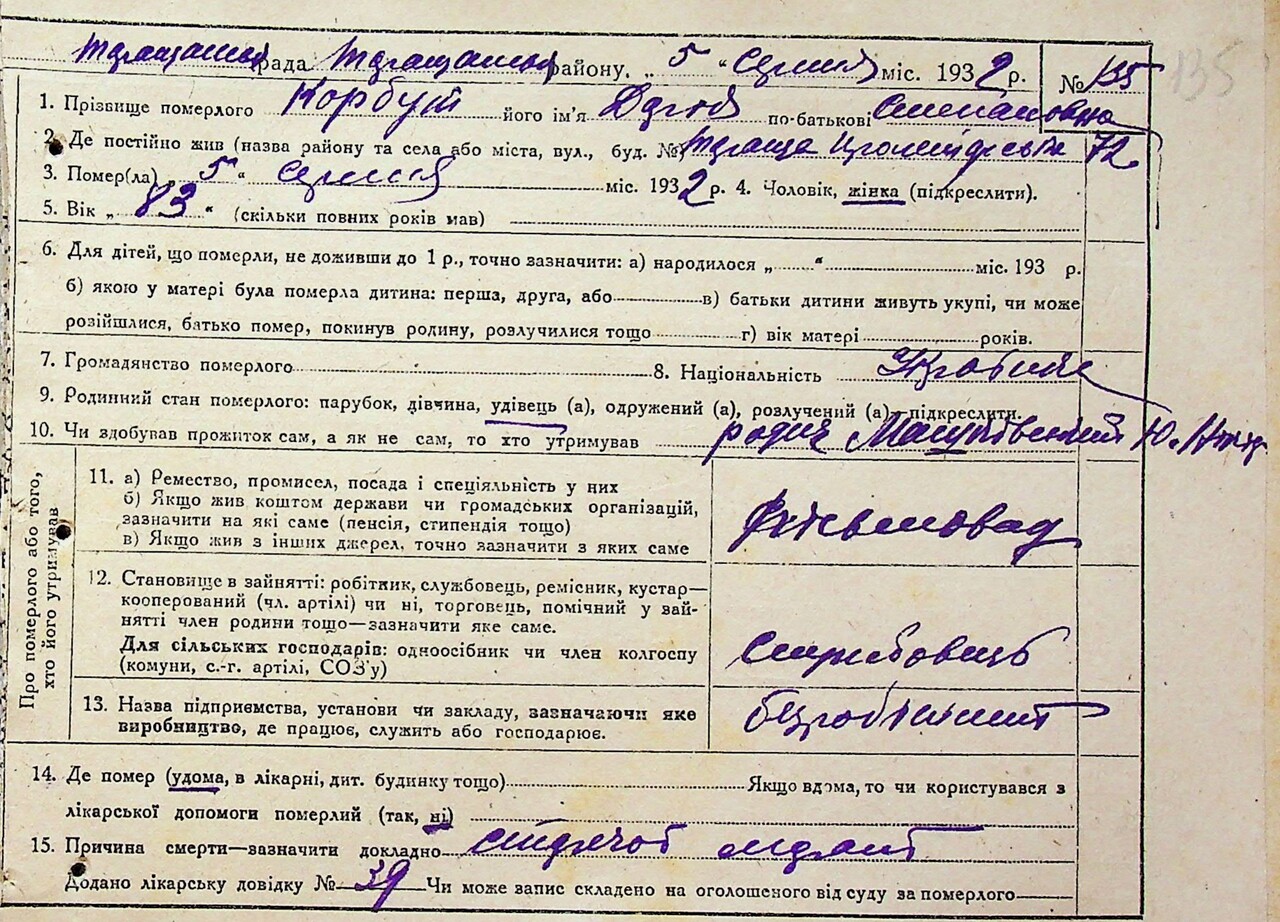 рада району. „ 5 “ Серпня міс. 1932 р. № 135
135
1. Прізвище померлого Корбут його ім'я по-батькові Степановна
2. Де постійно жив (назва району та села або міста, вул., буд. № 72
3. Помер(ла) „ 5 “ Серпня міс. 1932 р. 4. Чоловік, жінка (підкреслити).
5. Вік „ 83 “ (скільки повних років мав)
6. Для дітей, що померли, не доживши до 1 р., точно зазначити: а) народилося „ “ міс. 193 р.
б) якою у матері була померла дитина: перша, друга, або в) батьки дитини живуть укупі, чи може
розійшлися, батько помер, покинув родину, розлучилися тощо г) вік матері років.
7. Громадянство померлого 8. Національність
9. Родинний стан померлого: парубок, дівчина, удівець (а), одружений (а), розлучений (а)—підкреслити.
10. Чи здобував прожиток сам, а як не сам, то хто утримував родич
Про померлого або того,
хто його утримував
11. а) Ремество, промисел, посада і спеціяльність у них
б) Якщо жив коштом держави чи громадських організацій,
зазначити на які саме (пенсія, стипендія тощо)
в) Якщо жив з інших джерел, точно зазначити з яких саме
Рахівновод
12. Становище в зайнятті: робітник, службовець, ремісник, кустар—
кооперований (чл. артілі) чи ні, торговець, помічний у зай-
нятті член родини тощо—зазначити яке саме.
Для сільських господарів: одноосібник чи член колгоспу
(комуни, с.-г. артілі, СОЗ'у)
Службовець
13. Назва підприємства, установи чи закладу, зазначаючи яке
виробництво, де працює, служить або господарює.
безробітний
14. Де помер (удома, в лікарні, дит. будинку тощо) Якщо вдома, то чи користувався з
лікарської допомоги померлий (так, ні)
15. Причина смерти—зазначити докладно
Додано лікарську довідку № 39 Чи може запис складено на оголошеного від суду за померлого